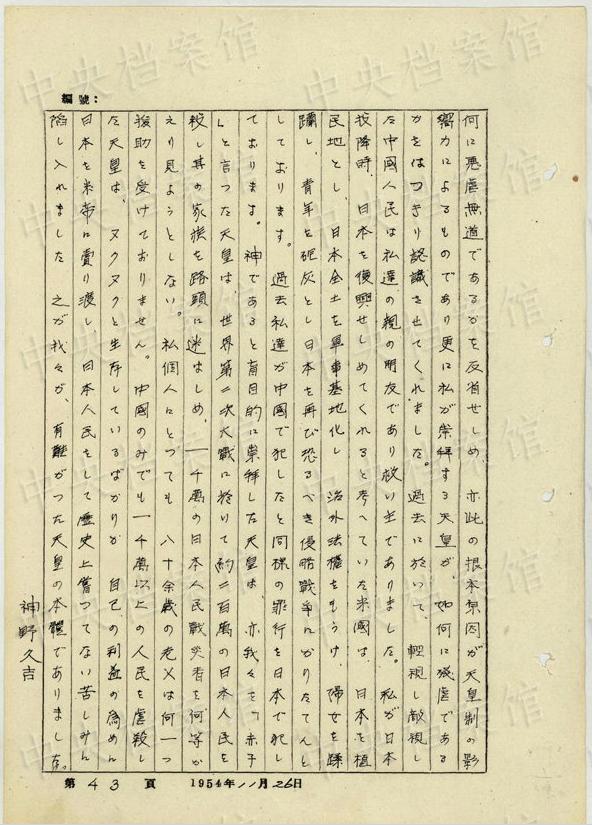 編號：
何に悪虐無道であるかを反省せしめ、亦此の根本原因が天皇制の影
響力によるものであり更に私が崇拜する天皇が、如何に残虐である
かをはつきり認識させてくれました。過去に於いて、軽視し敵視し
た中國人民は私達の親の朋友であり救い主でありました。私が日本
投降時、日本を復興せしめてくれると考へていた米國は、日本を植
民地とし、日本全土を軍事基地化し、治外法権をもうけ、帰女を蹂
躙し、青年を砲灰とし日本を再び恐るべき侵略戦争にかりたてんと
しております。過去私達が中國で犯したと同様の罪行を日本で犯し
ております。神であると盲目的に崇拜した天皇は、亦我々を「赤子
」と言つた天皇は、世界第二次大戰に於いて約二百萬の日本人民を
殺し其の家族を路頭に迷はしめ、一千萬の日本人民戰災者を何等か
えり見ようとしない。私個人にとつても八十余歳の老父は何一つ
援助を受けておりません。中國のみでも一千萬以上の人民を虐殺し
た天皇は、ヌクヌクと生存しているばかりか自己の利益の為めに
日本を米帝に賣り渡し、日本人民をして歴史上嘗つてない苦しみに
陥し入れました 之が我々が、有難がつた天皇の本體でありました。
神野久吉
第 43 頁 1954年11月26日
中央档案馆